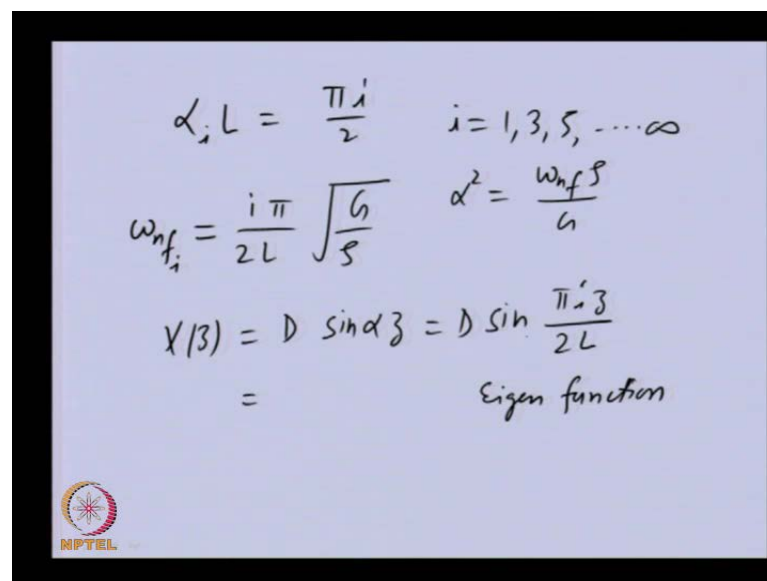 α_i L = πi/2    i = 1, 3, 5, ----∞
ω_nf_i = iπ/2L √(G/ρ)    α² = ω_nf ρ/G
X(z) = D sin αz = D sin πiz/2L
=    Eigen function
NPTEL